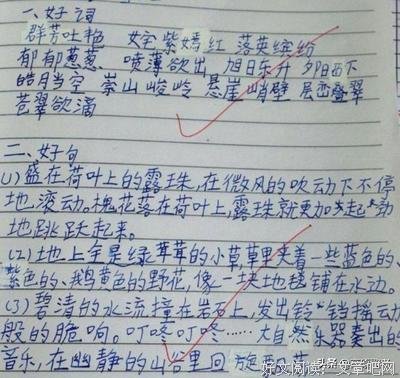 一、好词
群芳吐艳 姹紫嫣红 落英缤纷
郁郁葱葱 喷薄欲出 旭日东升 夕阳西下
皓月当空 崇山峻岭 悬崖峭壁 层峦叠翠
苍翠欲滴
二、好句
(1)盛在荷叶上的露珠,在微风的吹动下不停
地滚动。槐花落在荷叶上,露珠就更加起劲
地跳跃起来。
(2)地上全是绿茸茸的小草草里夹着一些蓝色的、
紫色的、鹅黄色的野花,像一块地毯铺在水边。
(3)碧清的水流撞在岩石上,发出铃铛摇动
般的脆响。叮咚叮咚……大自然乐器奏出的
音乐,在幽静的山谷里回
好文阅读,文章吧网